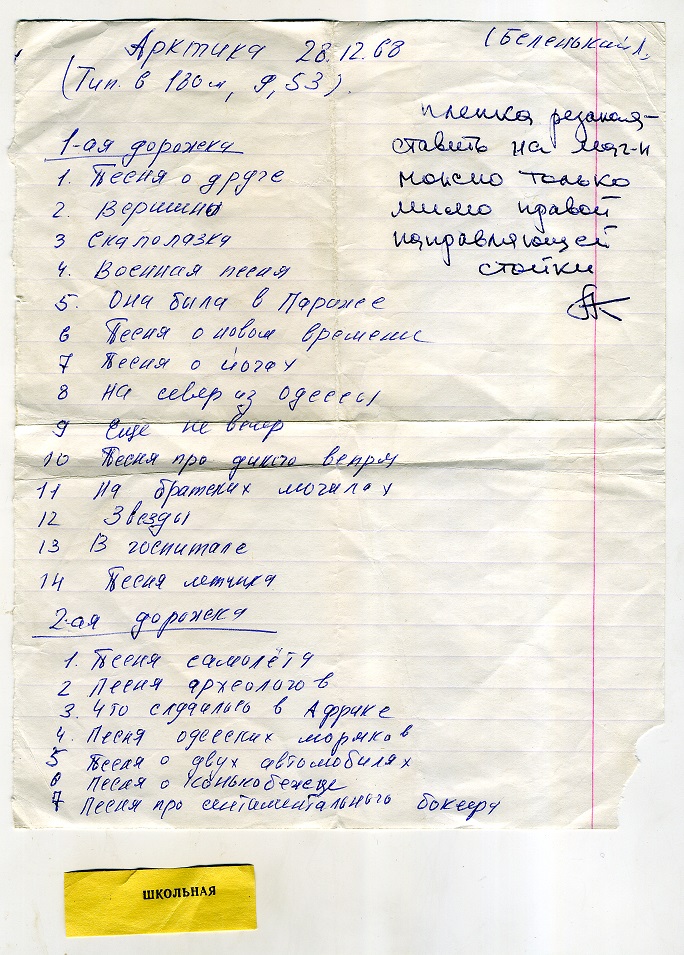 Арктика 28.12.68
(Беленький Л.
(Тип. 6 180м, 9,53).
пленка резаная -
ставить на маг-н
можно только
мимо правой
направляющей
стойки
АК
1-ая дорожка
1. Песня о друге
2. Вершины
3 Скалолазка
4. Военная песня
5. Она была в Париже
6 Песня о новом времени
7 Песня о йогах
8 На север из Одессы
9 Еще не вечер
10 Песня про дикого вепря
11 На братских могилах
12 Звезды
13 В госпитале
14 Песня летчика
2-ая дорожка
1. Песня самолёта
2 Песня археологов
3. Что случилось в Африке
4. Песня одесских моряков
5 Песня о двух автомобилях
6 Песня о конькобежце
7 Песня про сентиментального боксера
ШКОЛЬНАЯ